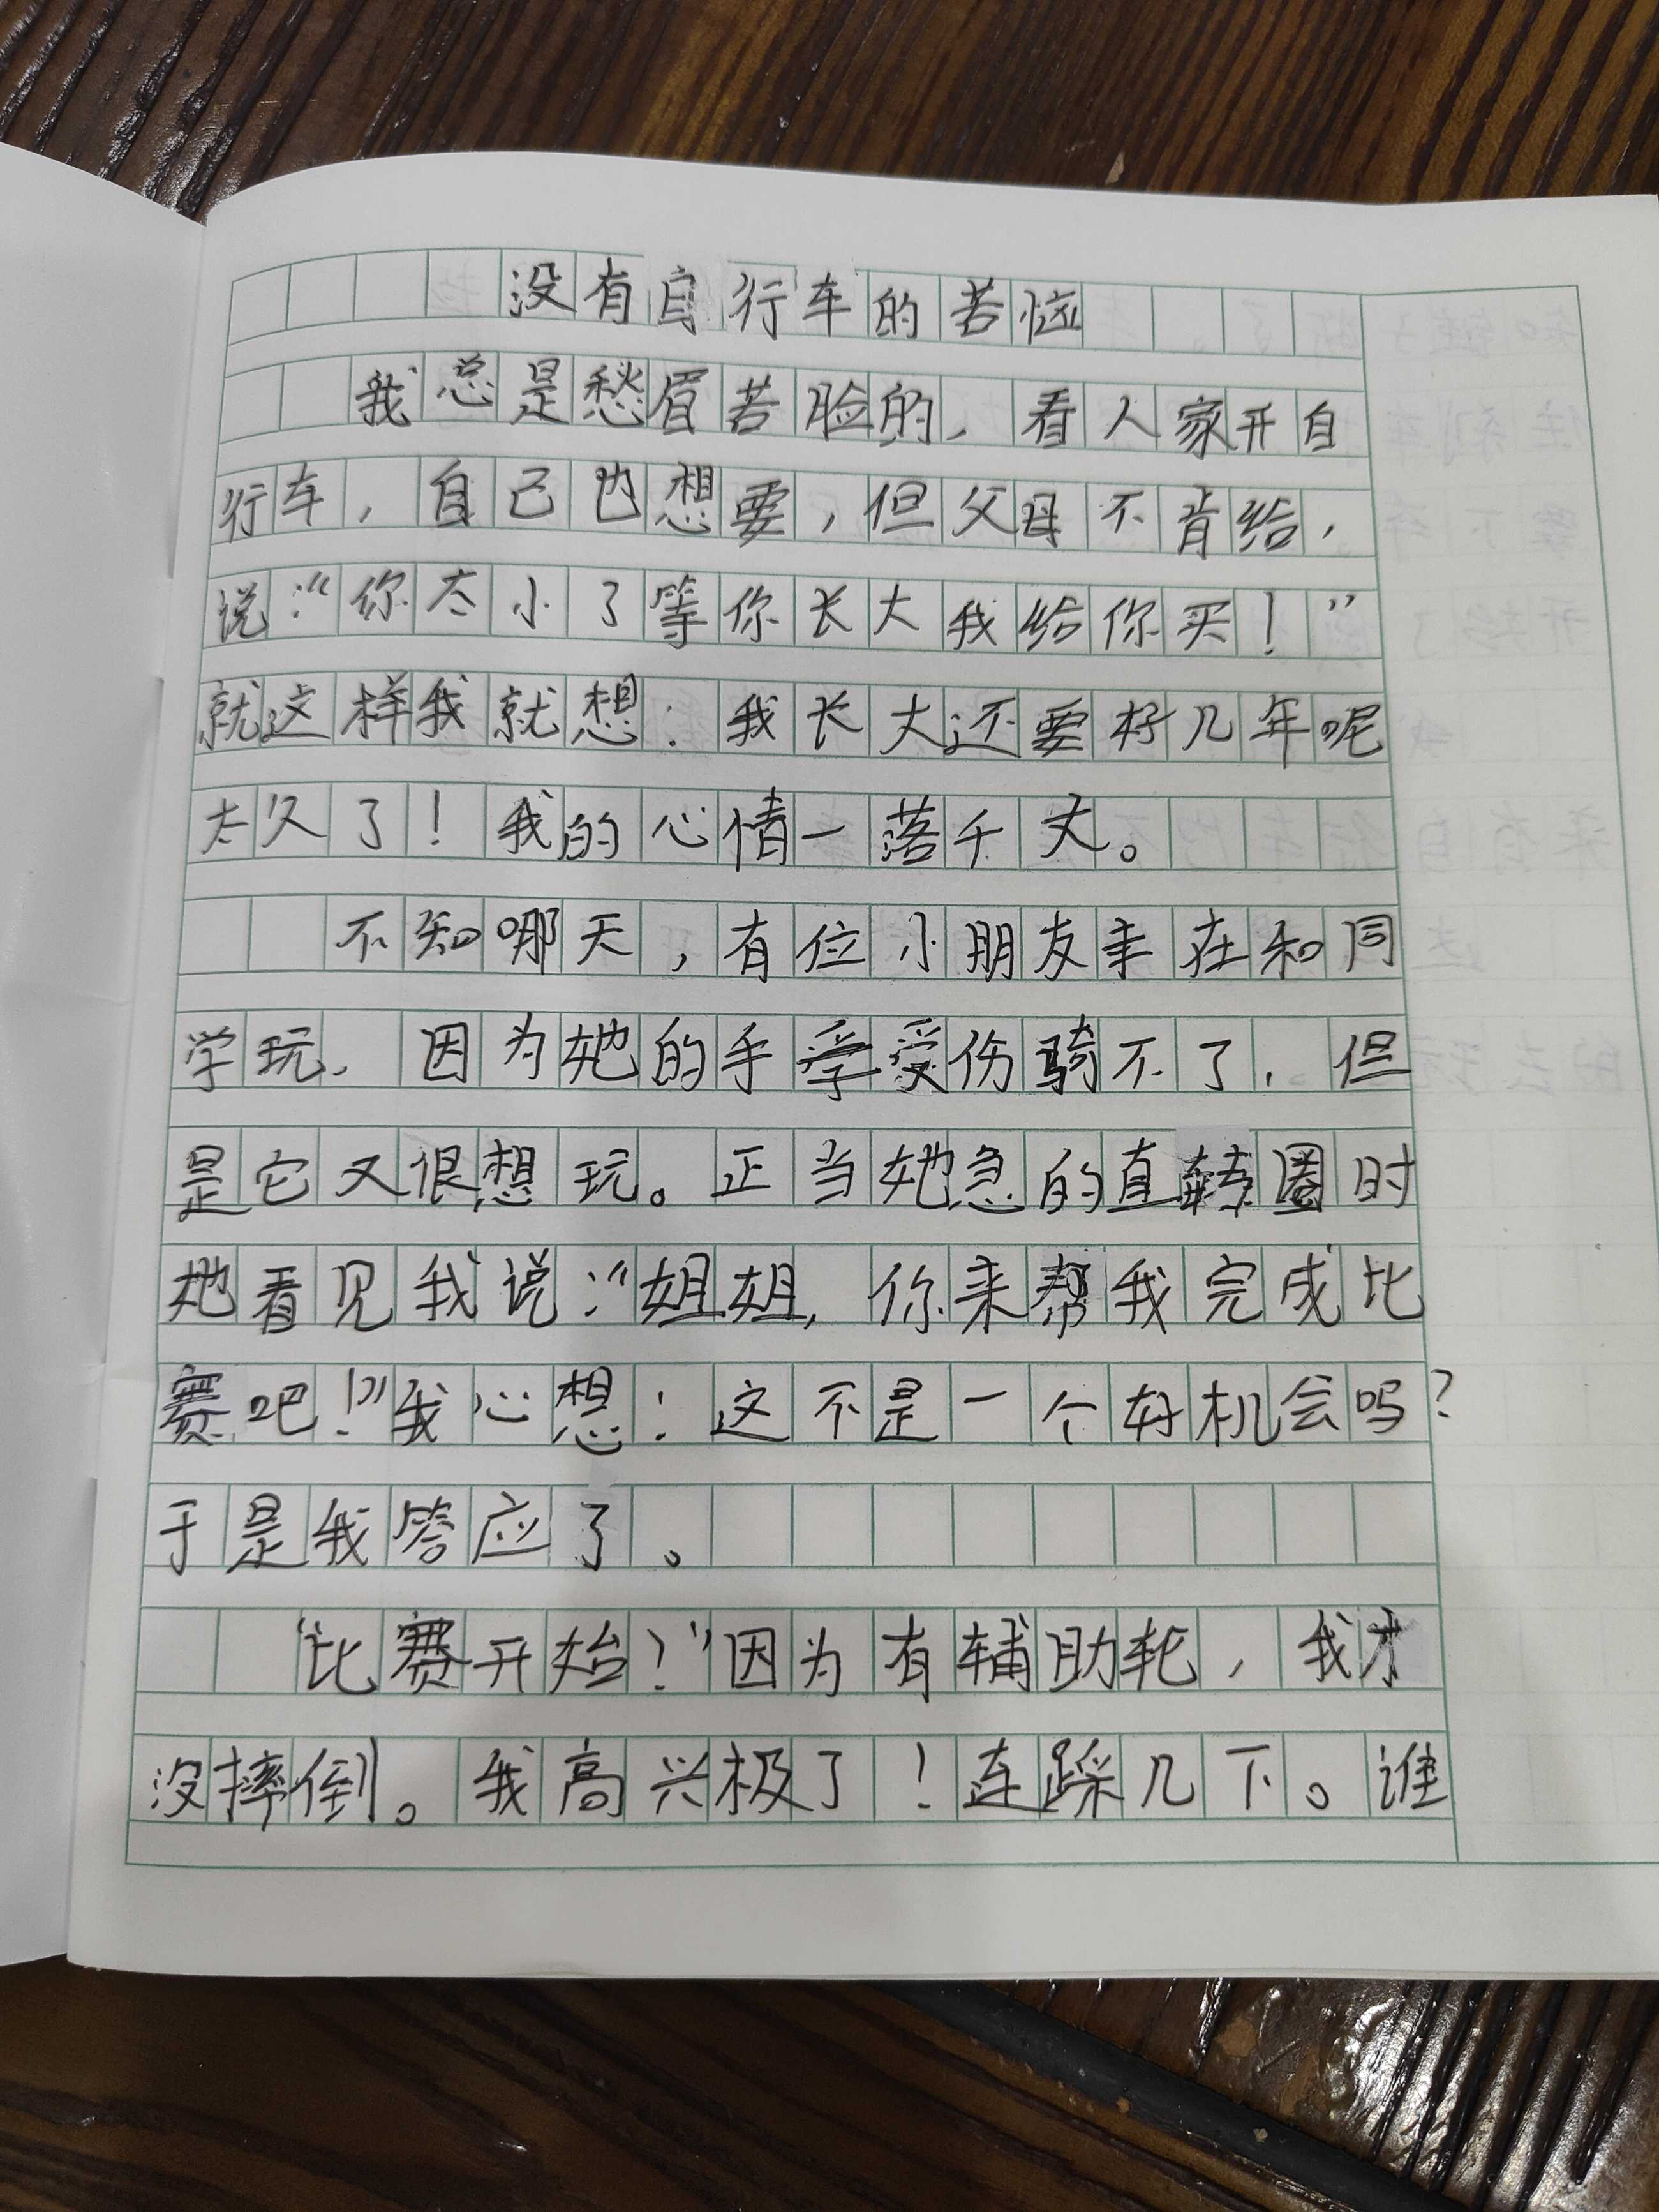 没有自行车的苦恼
我总是愁眉苦脸的，看人家开自
行车，自己也想要，但父母不肯给，
说：“你太小了等你长大我给你买！”
就这样我就想：我长大还要好几年呢
太久了！我的心情一落千丈。
不知哪天，有位小朋友丰在和同
学玩，因为她的手受伤骑不了，但
是它又很想玩。正当她急的直转圈时
她看见我说：“姐姐，你来帮我完成比
赛吧！”我心想：这不是一个好机会吗？
于是我答应了。
“比赛开始！”因为有辅助轮，我才
没摔倒。我高兴极了！连踩几下。谁